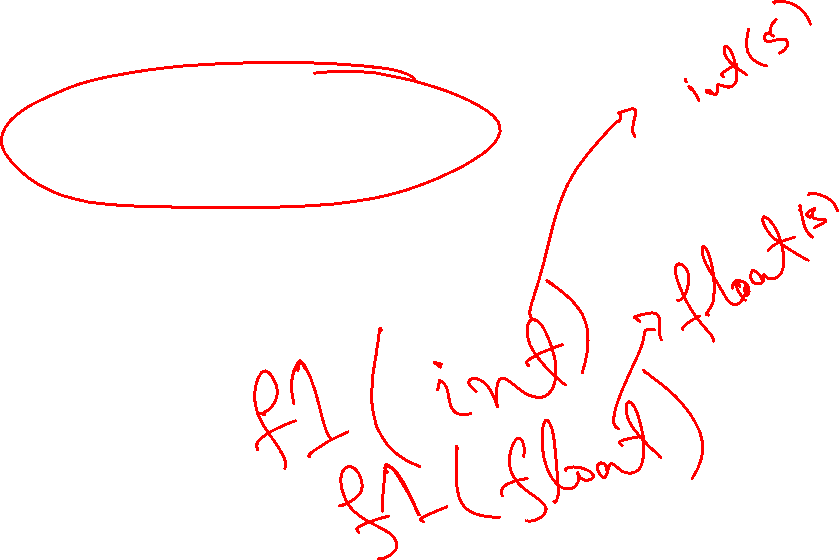 int(s)
float(s)
f1(int)
f1(float)